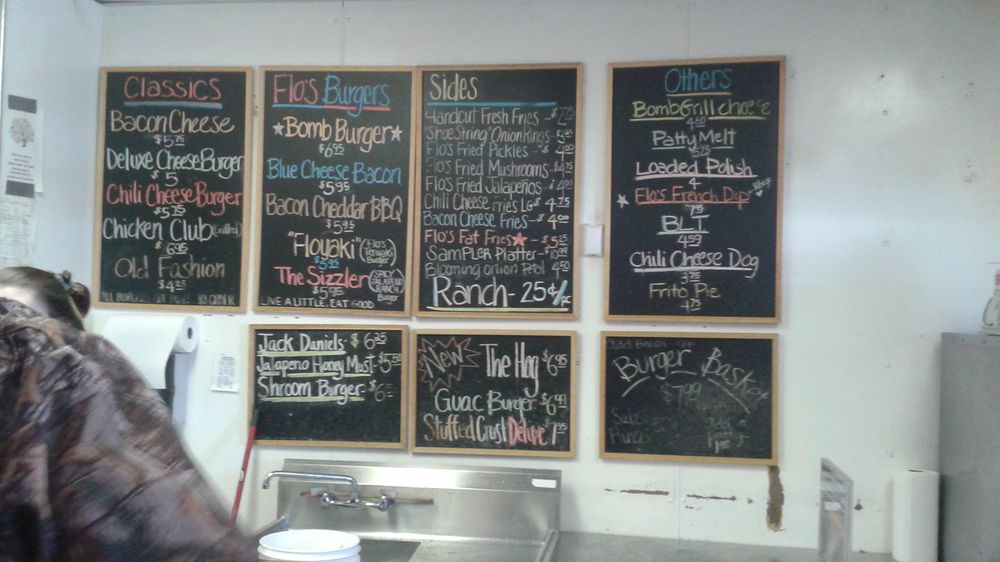 Classics
Bacon Cheese
$5.75
Deluxe Cheese Burger
$5
Chili Cheese Burger
$5.75
Chicken Club (Grilled)
$6.95
Old Fashion
$4.25
Flo's Burgers
Bomb Burger
$6.95
Blue Cheese Bacon
$5.95
Bacon Cheddar BBQ
$5.95
"Floyaki" (Flo's Teriyaki Burger)
$5.95
The Sizzler (Spicy Jalapeno Ranch Burger)
$5.95
Live a little, Eat good
Sides
Handcut Fresh Fries - $2.25
Shoe String Onion Rings -
Flo's Fried Pickles -
Flo's Fried Mushrooms -
Flo's Fried Jalapeños -
Chili Cheese Fries LG $4.75
Bacon Cheese Fries - $4.00
Flo's Fat Fries - $5.25
Sampler Platter - $10.99
Blooming onion Petal 4.50
Ranch - 25¢/pc
Others
Bomb Grill cheese
4.50
Patty Melt
5.75
Loaded Polish
4
Flo's French Dip
BLT
4.99
Chili Cheese Dog
3.75
Frito Pie
4.75
Jack Daniels - $6.25
Jalapeno Honey Must -
Shroom Burger -
New The Hog $6.95
Guac Burger $6.99
Stuffed Crust Deluxe
Burger Basket
$7.99